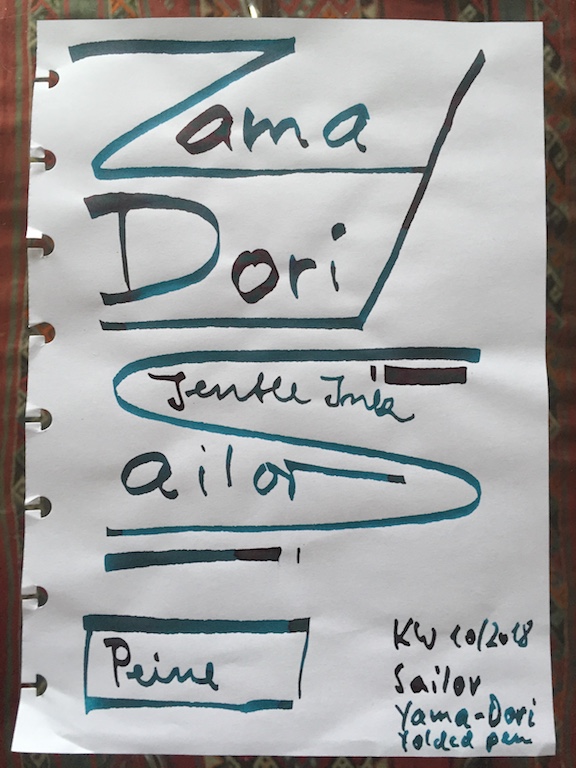 Zama
Dori
Jentle Ink
Sailor
Peine
KW 10/2018
Sailor
Yama-Dori
folded pen